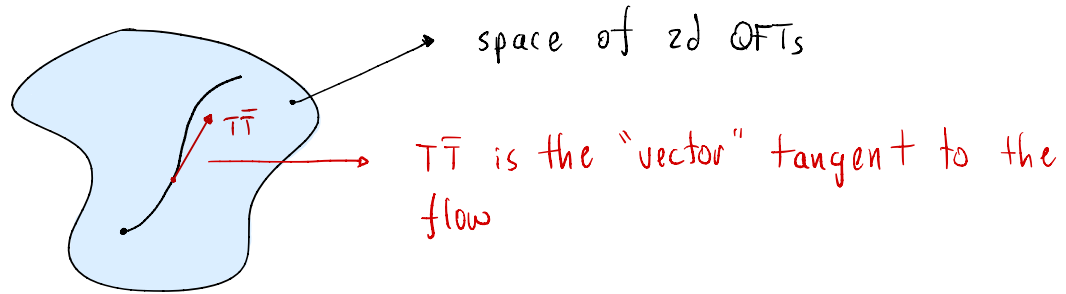 space of 2d QFTs
TT̄
TT̄ is the "vector" tangent to the
flow